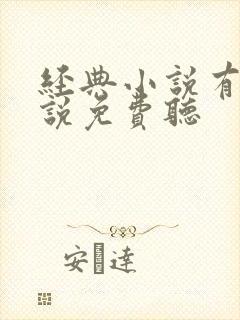 經典小說有
說免費聽
安達